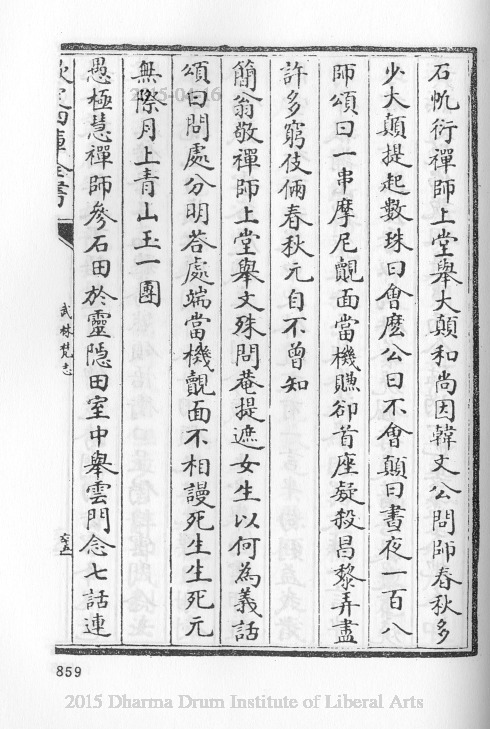 石帆衍禪師上堂舉大顛和尚因韓文公問師春秋多
少大顛提起數珠曰會麽公曰不會顛曰晝夜一百八
師頌曰一串摩尼覿面當機賺卻首座疑殺昌黎弄盡
許多窮伎倆春秋元自不曾知
簡翁敬禪師上堂舉文殊問菴提遮女生以何為義話
頌曰問處分明荅處端當機覿面不相謾死生生死元
無際月上青山玉一團
愚極慧禪師參石田於靈隱田室中舉雲門念七話連
欽定四庫全書
武林梵志
2015-04-16
859
2015 Dharma Drum Institute of Liberal Arts